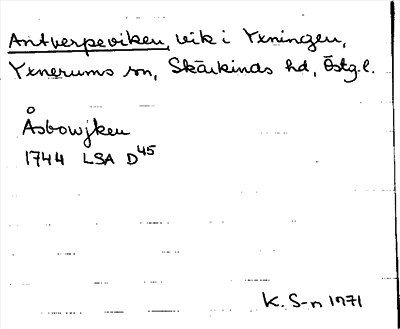 Antverpeviken, vik i Yxningen,
Yxnerums sn, Skärkinds hd, Östg.l.
Åsbowjken
1744 LSA D45
K. S-n 1971